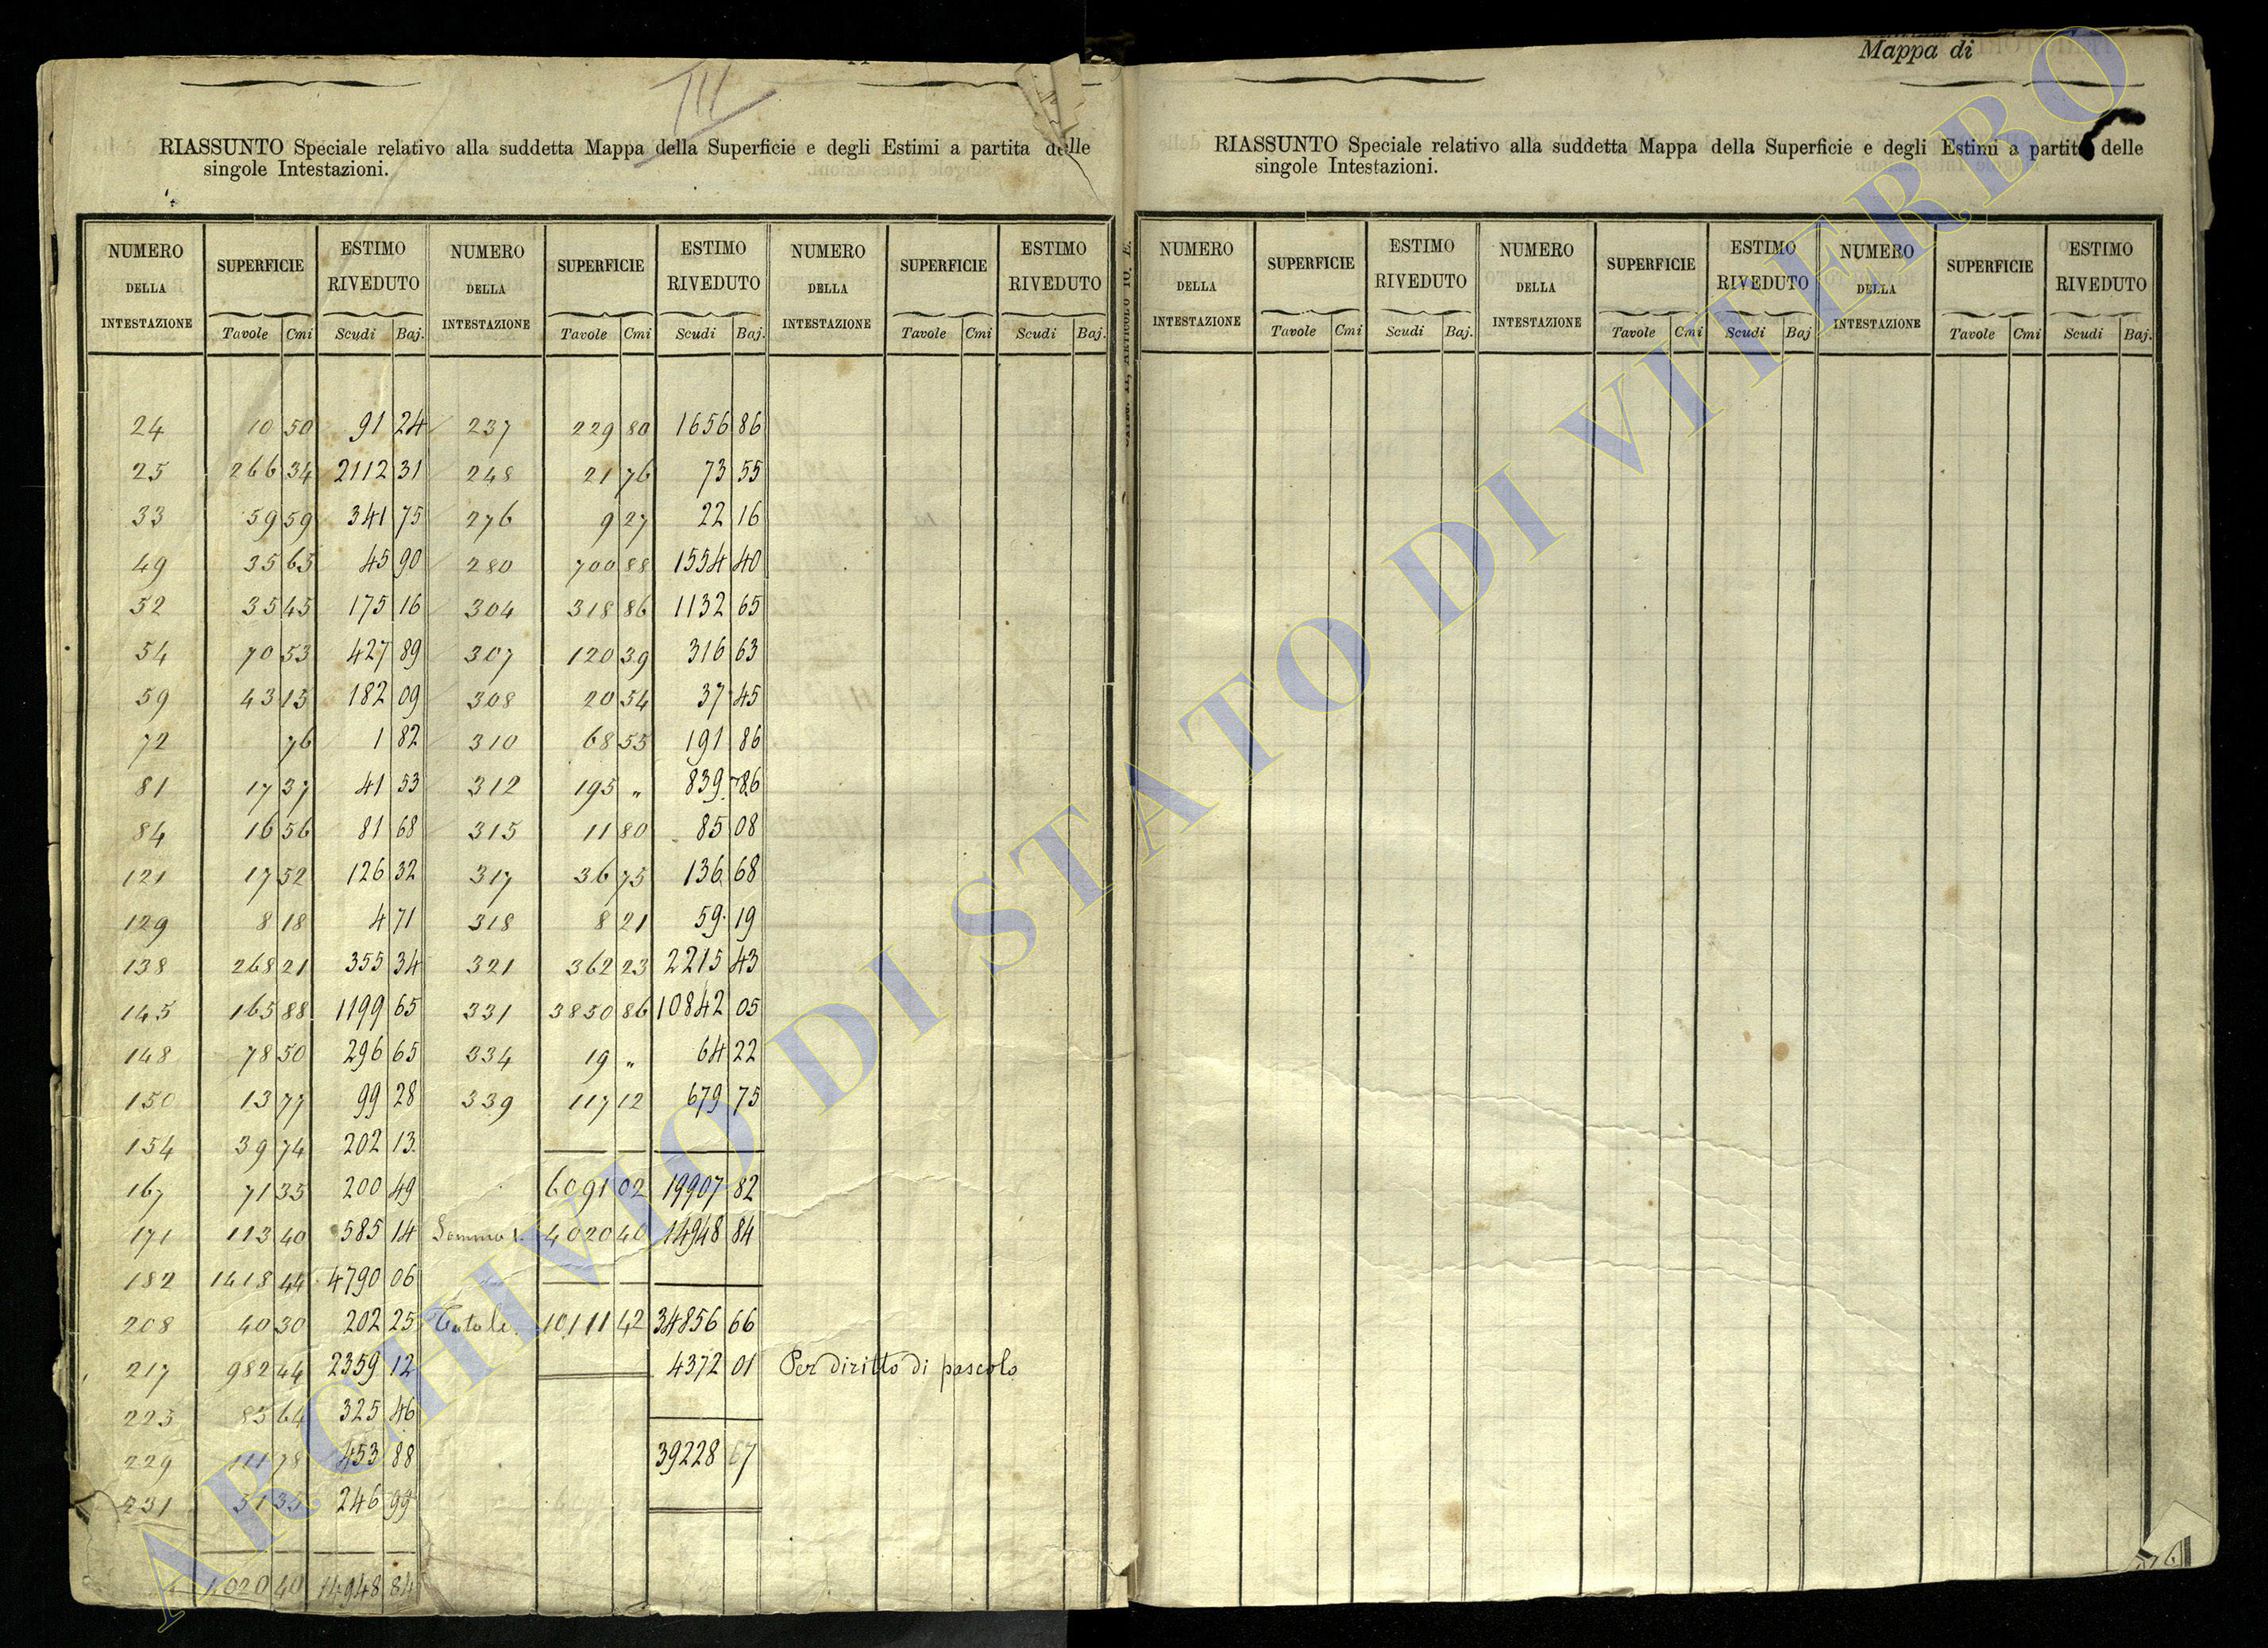 III
RIASSUNTO Speciale relativo alla suddetta Mappa della Superficie e degli Estimi a partita delle
singole Intestazioni.
NUMERO DELLA INTESTAZIONE SUPERFICIE Tavole Cmi ESTIMO RIVEDUTO Scudi Baj. NUMERO DELLA INTESTAZIONE SUPERFICIE Tavole Cmi ESTIMO RIVEDUTO Scudi Baj. NUMERO DELLA INTESTAZIONE SUPERFICIE Tavole Cmi ESTIMO RIVEDUTO Scudi Baj.
24 10 50 91 24 237 229 80 1656 86
25 266 34 2112 31 248 21 76 73 55
33 59 59 341 75 276 9 27 22 16
49 35 65 45 90 280 700 88 1554 40
52 35 45 175 16 304 318 86 1132 65
54 70 53 427 89 307 120 39 316 63
59 43 13 182 09 308 20 54 37 45
72 76 1 82 310 68 55 191 86
81 17 37 41 53 312 195 " 839 86
84 16 56 81 68 315 11 80 85 08
121 17 52 126 32 317 36 75 136 68
129 8 18 4 71 318 8 21 59 19
138 268 21 355 34 321 362 23 2215 43
145 165 88 1199 65 331 3850 86 10842 05
148 78 50 296 65 334 19 " 64 22
150 13 77 99 28 339 117 12 679 75
154 39 74 202 13
167 71 35 200 49 6091 02 19907 82
171 113 40 585 14 4020 40 14948 84
182 1418 44 4790 06
208 40 30 202 25 Totale 10111 42 34856 66
217 982 44 2359 12 4372 01 Per diritto di pascolo
223 85 64 325 46
229 111 78 453 88 39228 67
231 246 99
4020 40 14948 84
Mappa di
RIASSUNTO Speciale relativo alla suddetta Mappa della Superficie e degli Estimi a partita delle
singole Intestazioni.
NUMERO DELLA INTESTAZIONE SUPERFICIE Tavole Cmi ESTIMO RIVEDUTO Scudi Baj. NUMERO DELLA INTESTAZIONE SUPERFICIE Tavole Cmi ESTIMO RIVEDUTO Scudi Baj NUMERO DELLA INTESTAZIONE SUPERFICIE Tavole Cmi ESTIMO RIVEDUTO Scudi Baj.
ARCHIVIO DI STATO DI VITERBO